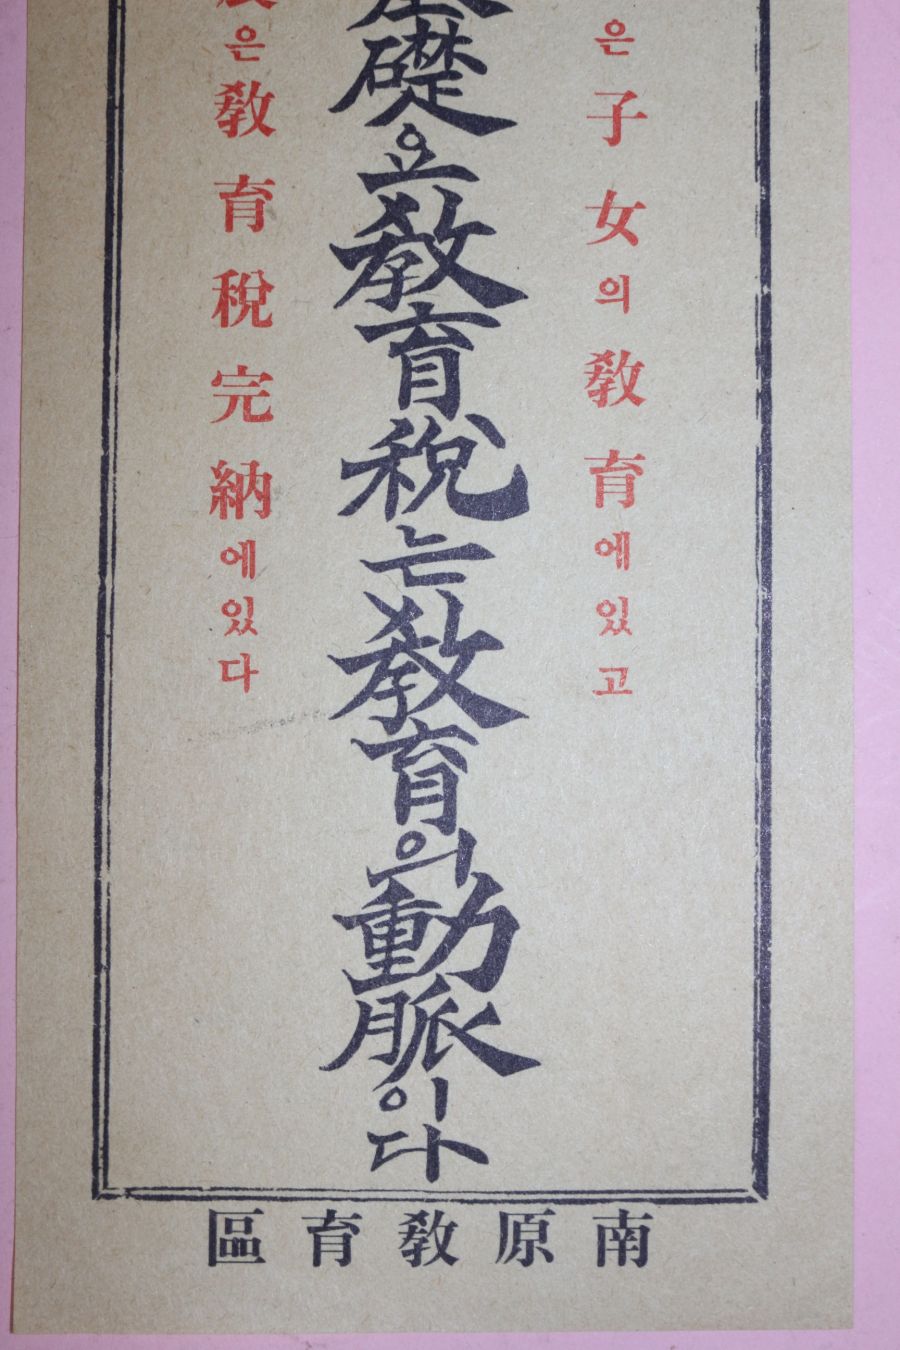 은 子女의 敎育에 있고
礎요 敎育稅는 敎育의 動脈이다
은 敎育稅完納에 있다
南原敎育區